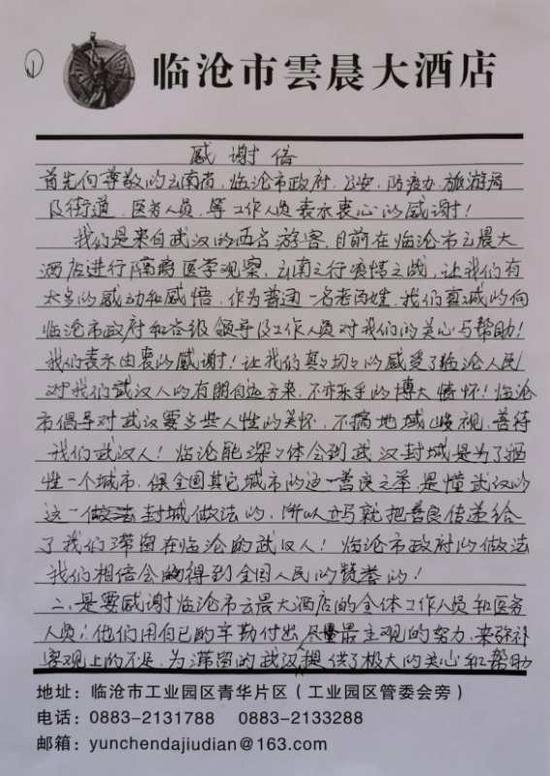 ①
临沧市雲晨大酒店
感谢信
首先向尊敬的云南省，临沧市政府，公安，防疫办，旅游局
及街道，医务人员，等工作人员表示衷心的感谢！
我们是来自武汉的两名游客，目前在临沧市云晨大
酒店进行隔离医学观察，云南之行疫情之战，让我们有
太多的感动和感悟，作为普通一名老百姓，我们真诚的向
临沧市政府和各级领导及工作人员对我们的关心与帮助！
我们表示由衷的感谢！让我们真真切切的感受了临沧人民
对我们武汉人的有朋自远方来，不亦乐乎的博大情怀！临沧
市倡导对武汉要多些人性的关怀，不搞地域歧视，善待
我们武汉人！临沧能深深体会到武汉封城是为了牺
牲一个城市，保全国其它城市的这一善良之举，是懂武汉的
这一做法封城做法的，所以立马就把善良传递给
了我们滞留在临沧的武汉人！临沧市政府的做法
我们相信会的得到全国人民的赞誉的！
二，是要感谢临沧市云晨大酒店的全体工作人员和医务
人员，他们用自己的辛勤付出尽最主观的努力，来弥补
客观上的不足，为滞留的武汉提供了极大的关心和帮助
地址：临沧市工业园区青华片区（工业园区管委会旁）
电话：0883-2131788 0883-2133288
邮箱：yunchendajiudian@163.com